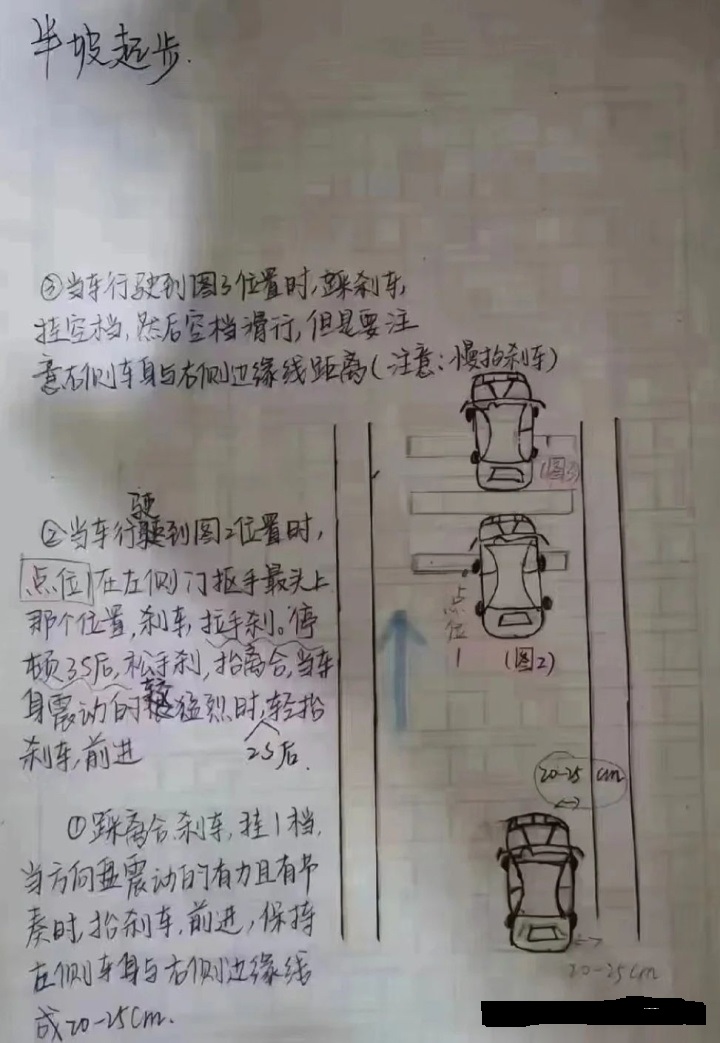 半坡起步.
③当车行驶到图3位置时,踩刹车,
挂空档,然后空档滑行,但是要注
意右侧车身与右侧边缘线距离(注意:慢抬刹车)
(图3)
②当车行驶到图2位置时,
点位1在左侧门抠手最头上
那个位置,刹车,拉手刹。停
顿3S后,松手刹,抬离合,当车
身震动的较猛烈时,轻抬
2S后.
刹车,前进
点位1
(图2)
20-25cm
①踩离合,刹车,挂1档,
当方向盘震动的有力且有节
奏时,抬刹车,前进,保持
左侧车身与右侧边缘线
成20-25cm.
20-25cm